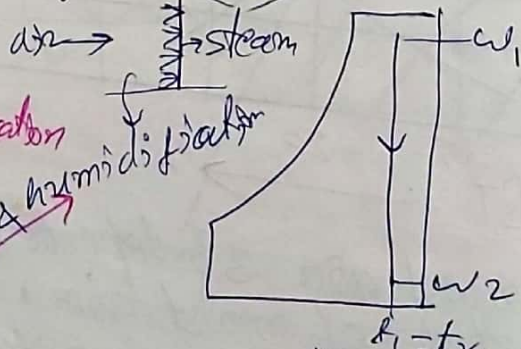 air → steam
ω1
& humidification
ω2
t1 - t2